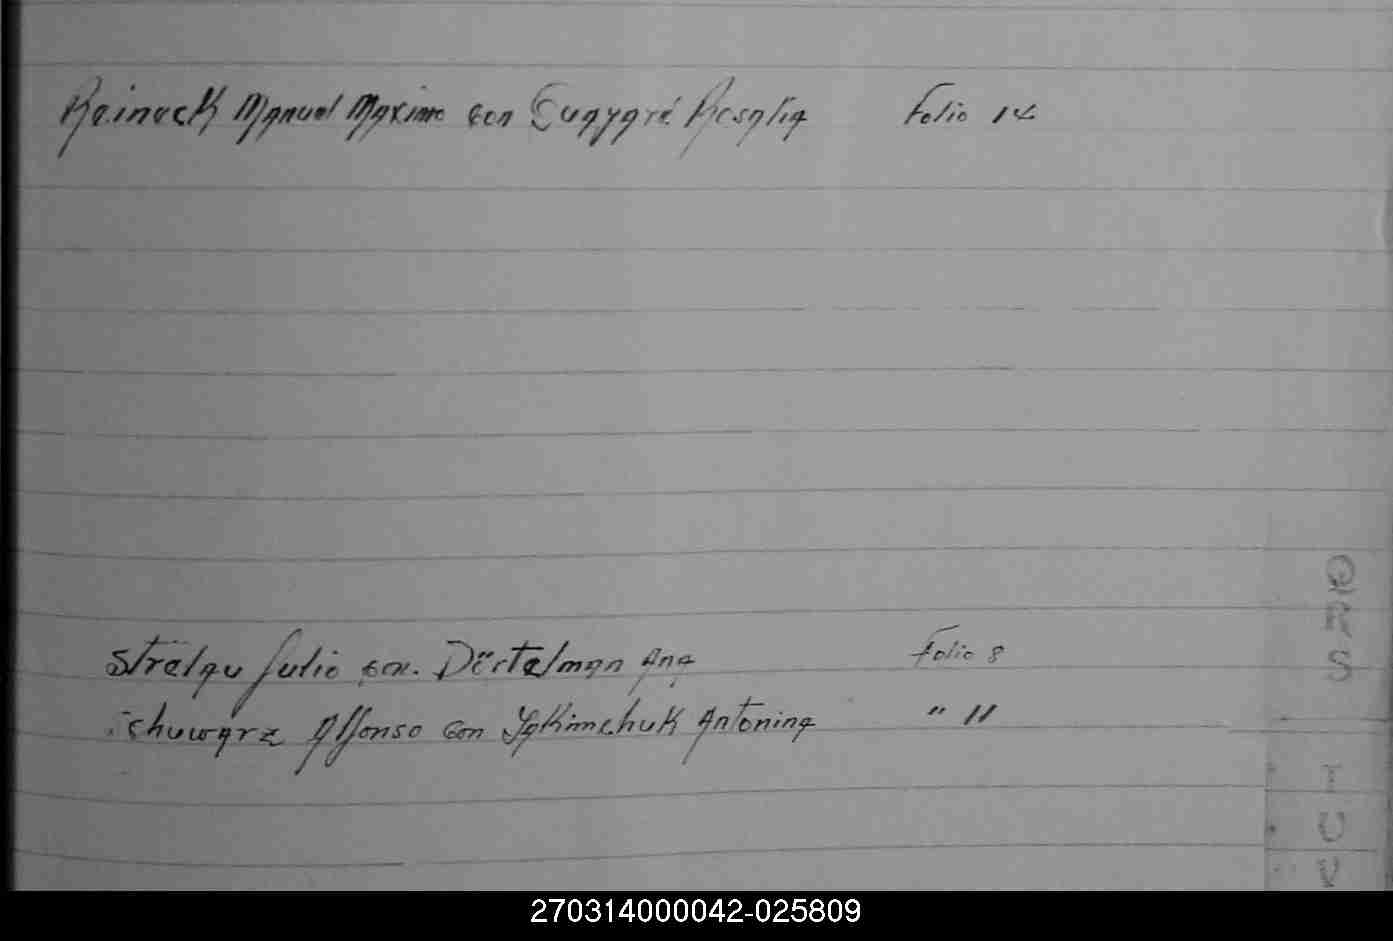 Reineck Manuel Maximo con Guayaré Rosalia Folio 14
Strëlau Julio con. Dörtelman Ana Folio 8
Schuwarz Alfonso con Yakimchuk Antonina " 11
Q
R
S
T
U
V
270314000042-025809